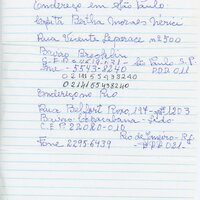 Endereço em São Paulo
Bertha Moraes Nerici
Rua Vicente Leporace nº 500
Bairro Brooklin
C.E.P. São Paulo S.P.
Fone - 5543-8240 DDD 011
02111 55438240
02141 65438240
Endereço no Rio
Rua Belfort Roxo, 197 1203
Bairro Copacabana - Lido
C.E.P. 22020-010
Rio de Janeiro - Rj.
Fone. 2295-6439 DDD 021.